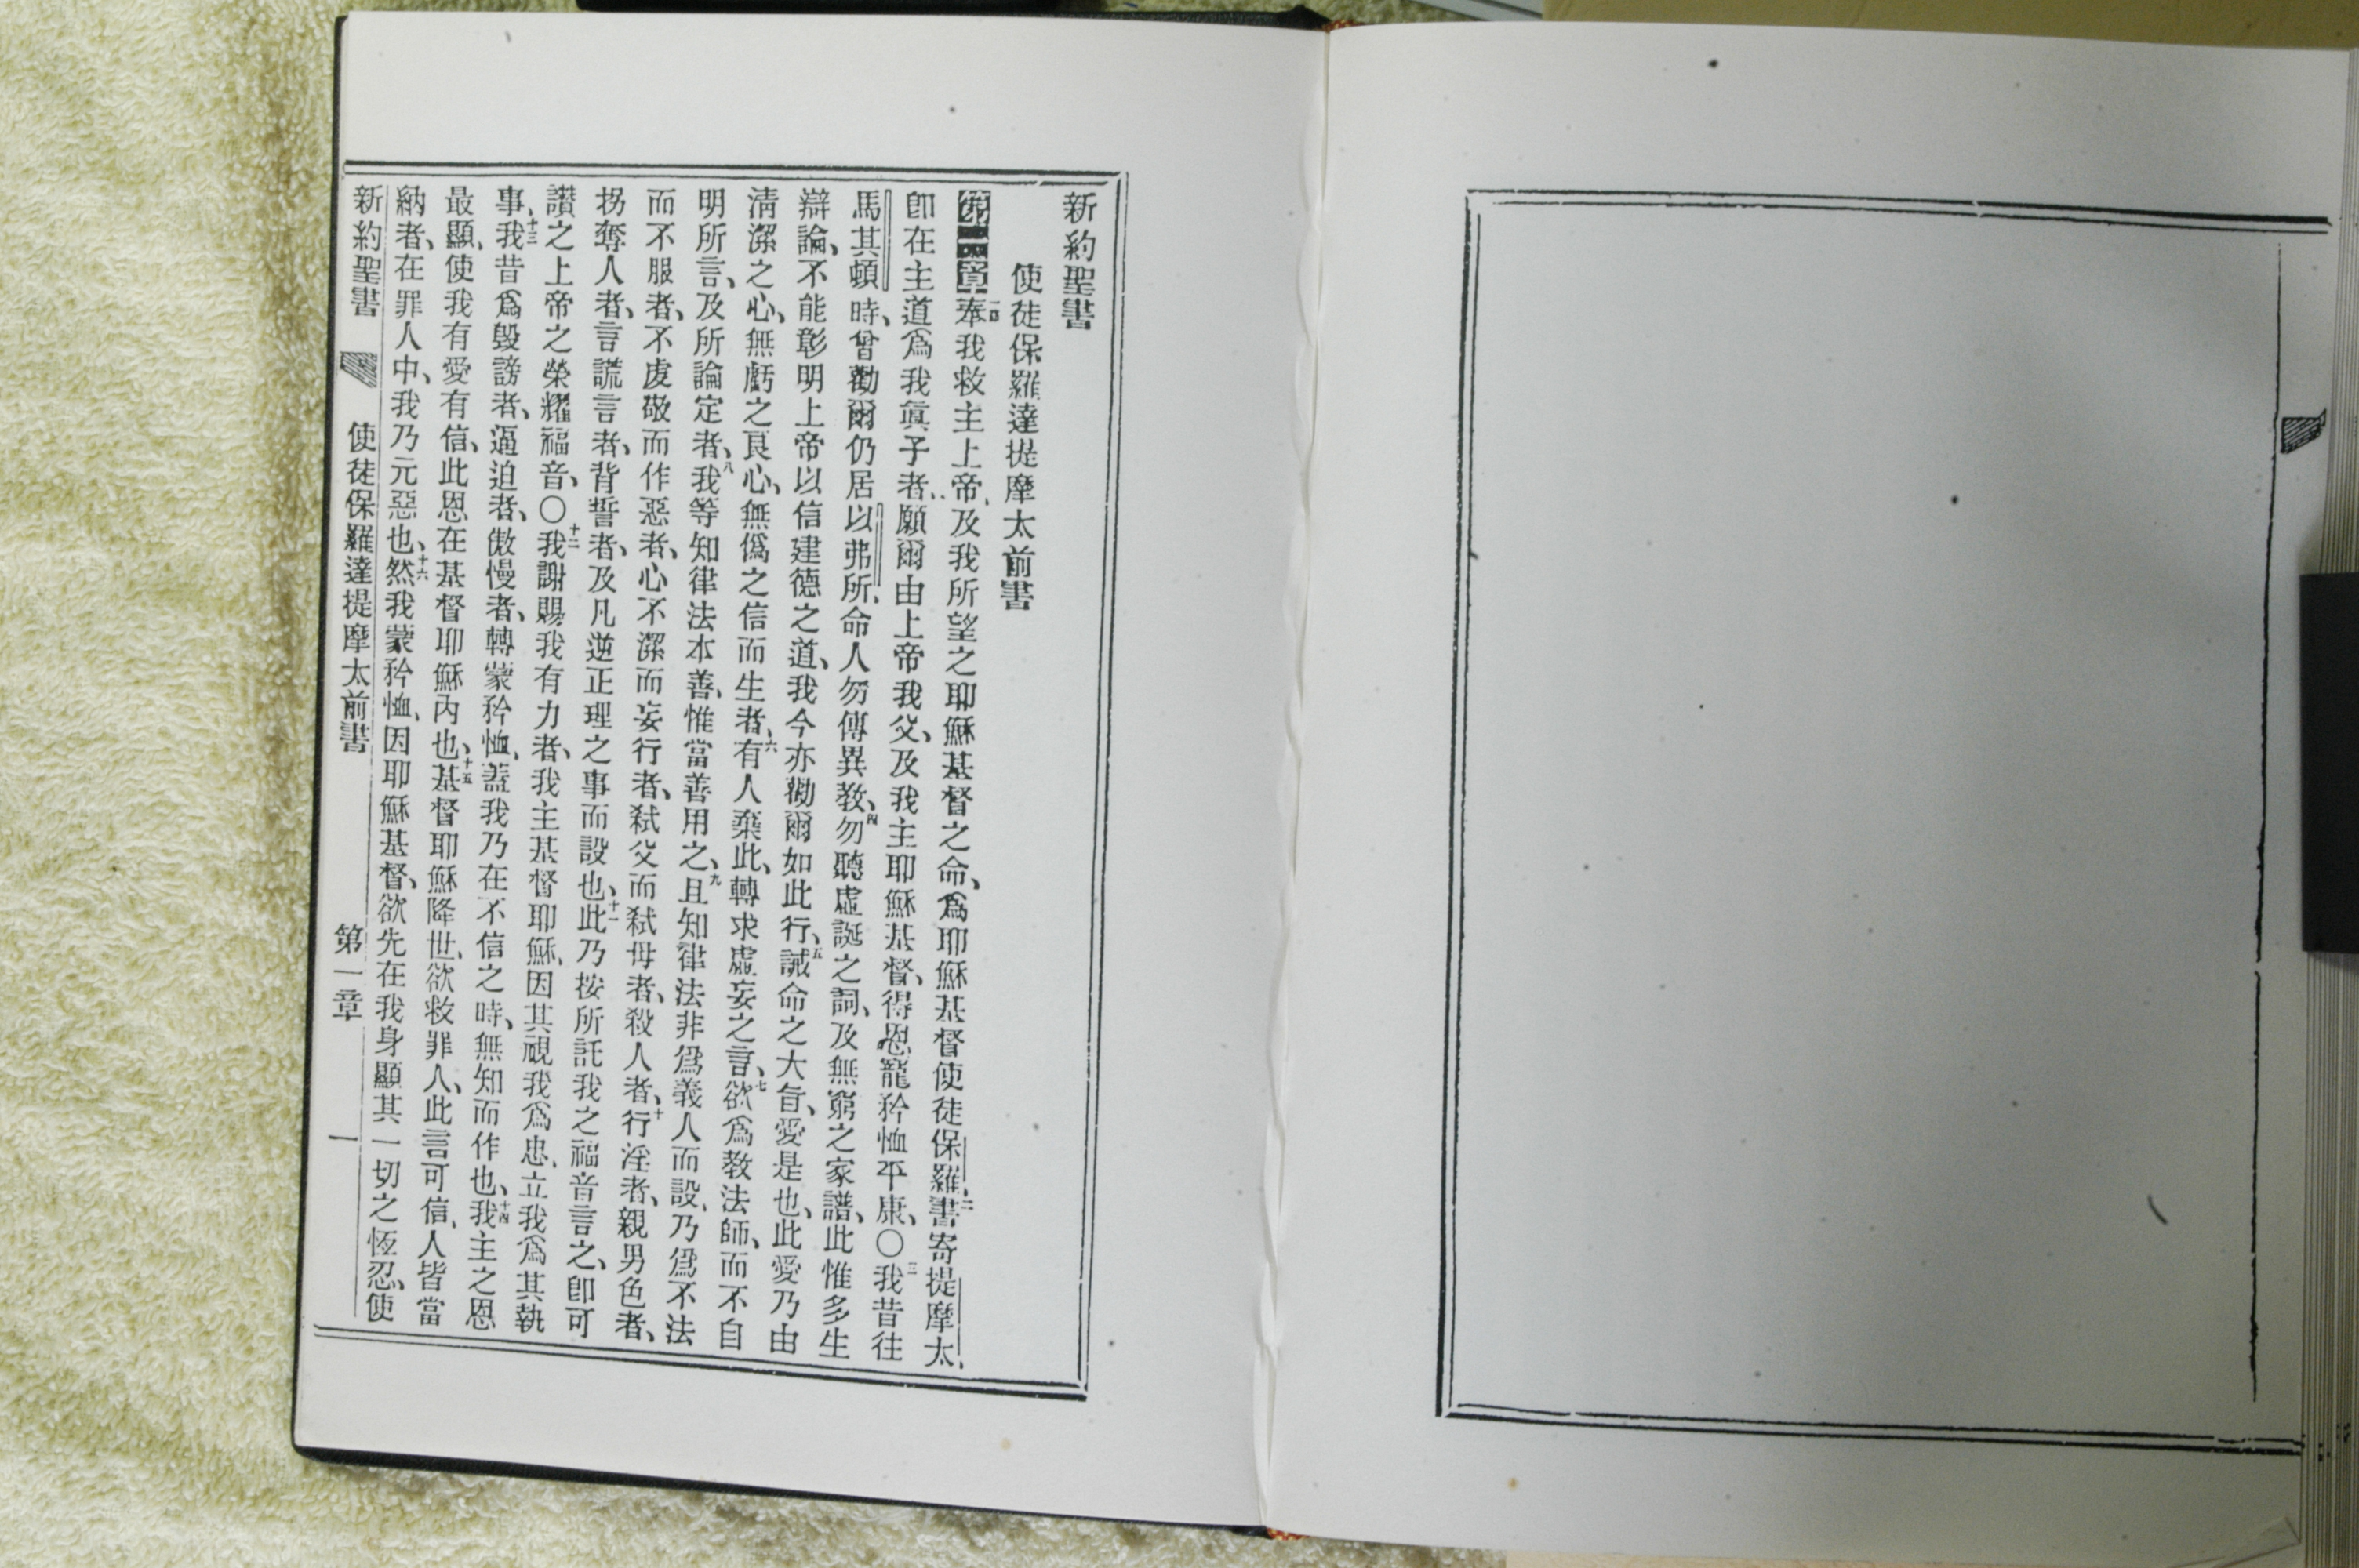 新約聖書
使徒保羅達提摩太前書
第一章 一奉我救主上帝、及我所望之耶穌基督之命、爲耶穌基督使徒保羅、二書寄提摩太、
卽在主道爲我眞子者、願爾由上帝我父、及我主耶穌基督、得恩寵矜恤平康、〇三我昔往
馬其頓時、曾勸爾仍居以弗所、命人勿傳異敎、四勿聽虛誕之詞、及無窮之家譜、此惟多生
辯論、不能彰明上帝以信建德之道、我今亦勸爾如此行、五誡命之大旨、愛是也、此愛乃由
淸潔之心、無虧之良心、無僞之信而生者、六有人棄此、轉求虛妄之言、七欲爲敎法師、而不自
明所言、及所論定者、八我等知律法本善、惟當善用之、九且知律法非爲義人而設、乃爲不法
而不服者、不虔敬而作惡者、心不潔而妄行者、弒父而弒母者、殺人者、十行淫者、親男色者、
拐奪人者、言謊言者、背誓者、及凡逆正理之事而設也、十一此乃按所託我之福音言之、卽可
讚之上帝之榮耀福音、〇十二我謝賜我有力者、我主基督耶穌、因其視我爲忠、立我爲其執
事、十三我昔爲毀謗者、逼迫者、傲慢者、轉蒙矜恤、蓋我乃在不信之時、無知而作也、十四我主之恩
最顯、使我有愛有信、此恩在基督耶穌內也、十五基督耶穌降世、欲救罪人、此言可信、人皆當
納者、在罪人中、我乃元惡也、十六然我蒙矜恤、因耶穌基督、欲先在我身顯其一切之恆忍、使
新約聖書 使徒保羅達提摩太前書 第一章 一